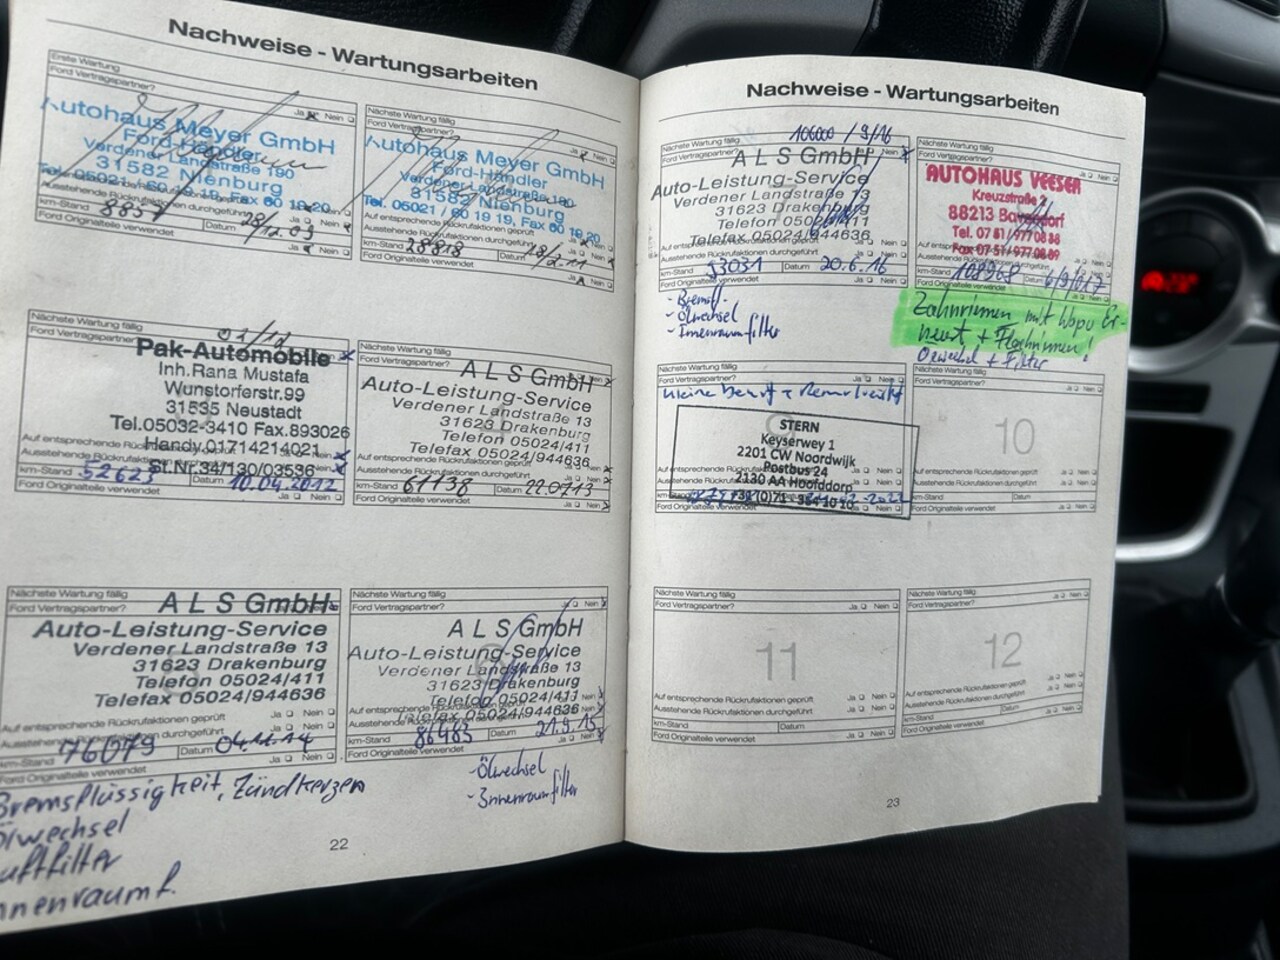 Nachweise - Wartungsarbeiten
Erste Wartung
Ford Vertragspartner? Ja Nein
Autohaus Meyer GmbH
Ford-Händler
Verdener Landstraße 190
31582 Nienburg
Tel. 05021 / 60 19 19, Fax 60 19 20
Ausstehende Rückrufaktionen durchgeführt Ja Nein
km-Stand 8857 Datum 28/12.09
Ford Originalteile verwendet Ja Nein
Nächste Wartung fällig
Ford Vertragspartner? Ja Nein
Autohaus Meyer GmbH
Ford-Händler
Verdener Landstraße 190
31582 Nienburg
Tel. 05021 / 60 19 19, Fax 60 19 20
Auf entsprechende Rückrufaktionen geprüft
Ausstehende Rückrufaktionen durchgeführt Ja Nein
km-Stand 28818 Datum 18/2.11
Ford Originalteile verwendet Ja Nein
Nächste Wartung fällig
Ford Vertragspartner?
Pak-Automobile
Inh.Rana Mustafa
Wunstorferstr.99
31535 Neustadt
Tel.05032-3410 Fax.893026
Handy.01714214021
St.Nr.34/130/03536
Auf entsprechende Rückrufaktionen
km-Stand 52623 Datum 10.04.2012
Ford Originalteile verwendet Ja Nein
Nächste Wartung fällig
Ford Vertragspartner?
A L S GmbH
Auto-Leistung-Service
Verdener Landstraße 13
31623 Drakenburg
Telefon 05024/411
Telefax 05024/944636
Auf entsprechende Rückrufaktionen geprüft
Ausstehende Rückrufaktionen durchgeführt Ja Nein
km-Stand 61138 Datum 22.07.13
Ford Originalteile verwendet Ja Nein
Nächste Wartung fällig
Ford Vertragspartner?
A L S GmbH
Auto-Leistung-Service
Verdener Landstraße 13
31623 Drakenburg
Telefon 05024/411
Telefax 05024/944636
Auf entsprechende Rückrufaktionen geprüft Ja Nein
Ausstehende Rückrufaktionen durchgeführt Ja Nein
76079 Datum 04.12.14
Ford Originalteile verwendet Ja Nein
Bremsflüssigkeit, Zündkerzen
Ölwechsel
Luftfilter
Innenraumf.
Nächste Wartung fällig
Ford Vertragspartner? Ja Nein
A L S GmbH
Auto-Leistung-Service
Verdener Landstraße 13
31623 Drakenburg
Telefon 05024/411
Telefax 05024/944636
km-Stand 86483 Datum 21.9.15
Ford Originalteile verwendet Ja Nein
-Ölwechsel
-Innenraumfilter
22
Nachweise - Wartungsarbeiten
106000 / 9/16
Nächste Wartung fällig
Ford Vertragspartner? Ja Nein
A L S GmbH
Auto-Leistung-Service
Verdener Landstraße 13
31623 Drakenburg
Telefon 05024/411
Telefax 05024/944636
Ausstehende Rückrufaktionen durchgeführt Ja Nein
km-Stand Datum 20.6.16
Ford Originalteile verwendet Ja Nein
- Ölwechsel
- Innenraumfilter
Nächste Wartung fällig
Ford Vertragspartner?
AUTOHAUS VEESER
Kreuzstraße
88213
Tel. 07 51 / 977 08 88
Fax 07 51 / 977 08 89
km-Stand 108968 Datum
Ford Originalteile verwendet Ja Nein
Zahnriemen mit Wapu Er-
neuert + Flachriemen!
Ölwechsel + Filter
Nächste Wartung fällig
Ford Vertragspartner? Ja Nein
kleine
STERN
Keyserwey 1
2201 CW Noordwijk
Postbus 24
2130 AA Hoofddorp
+31 (0)71 - 364 10 10
Ford Originalteile verwendet Ja Nein
Nächste Wartung fällig
Ford Vertragspartner? Ja Nein
10
Auf entsprechende Rückrufaktionen geprüft Ja Nein
Ausstehende Rückrufaktionen durchgeführt Ja Nein
km-Stand Datum
Ford Originalteile verwendet Ja Nein
Nächste Wartung fällig
Ford Vertragspartner? Ja Nein
11
Auf entsprechende Rückrufaktionen geprüft Ja Nein
Ausstehende Rückrufaktionen durchgeführt Ja Nein
km-Stand Datum
Ford Originalteile verwendet Ja Nein
Nächste Wartung fällig
Ford Vertragspartner? Ja Nein
12
Auf entsprechende Rückrufaktionen geprüft Ja Nein
Ausstehende Rückrufaktionen durchgeführt Ja Nein
km-Stand Datum
Ford Originalteile verwendet Ja Nein
23